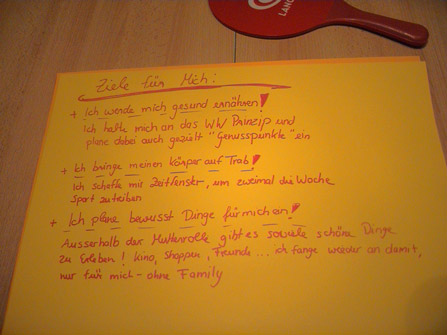 LANG
Ziele für Mich:
+ Ich werde mich gesund ernähren!
Ich halte mich an das WW Prinzip und
plane dabei auch gezielt "Genusspunkte" ein
+ Ich bringe meinen Körper auf Trab!
Ich schaffe mir Zeitfenster, um zweimal die Woche
Sport zu treiben
+ Ich plane bewusst Dinge für mich ein!
Ausserhalb der Mutterrolle gibt es soviele schöne Dinge
zu Erleben! Kino, shoppen, Freunde... ich fange wieder an damit,
nur für mich - ohne Family